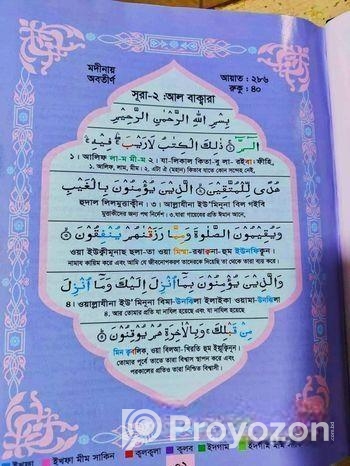 মদীনায়
অবতীর্ণ
আয়াত : ২৮৬
রুকু : ৪০
সূরা-২ :আল বাক্বারা
بِسْمِ اللهِ الرَّحْمٰنِ الرَّحِيْمِ
الٓمّٓ ۚ ذٰلِكَ الْكِتٰبُ لَا رَيْبَ ۛ فِيْهِ ۛ
১। আলিফ লা-ম মী-ম ২। যা-লিকাল কিতা-বু লা- রইবা- ফীহি,
১. আলিফ, লাম, মীম। ২. এটা ঐ (মহান) কিতাব যাতে কোন সন্দেহ নেই,
هُدًى لِّلْمُتَّقِيْنَ ۙ الَّذِيْنَ يُؤْمِنُوْنَ بِالْغَيْبِ
হুদাল লিলমুত্তাকীন। ৩। আল্লাযীনা ইউ'মিনূনা বিল গইবি
মুত্তাকীদের জন্য পথ নির্দেশ। ৩.যারা গায়েবের প্রতি ঈমান আনে,
وَيُقِيْمُوْنَ الصَّلٰوةَ وَمِمَّا رَزَقْنٰهُمْ يُنْفِقُوْنَ ۙ
ওয়া ইউক্বীমূনাছ ছলা-তা ওয়া মিম্মা-রঝাক্বনা-হুম ইউনফিকূন।
নামায কায়িম করে এবং আমি যে জীবনোপকরণ তাদেরকে দিয়েছি তা থেকে তারা ব্যয় করে।
وَالَّذِيْنَ يُؤْمِنُوْنَ بِمَا اُنْزِلَ اِلَيْكَ وَمَا اُنْزِلَ
৪। ওয়াল্লাযীনা ইউ'মিনূনা বিমা-উনঝিলা ইলাইকা ওয়ামা-উনঝিলা
৪. আর তোমার প্রতি যা নাযিল হয়েছে এবং যা নাযিল হয়েছে
مِنْ قَبْلِكَ ۚ وَبِالْاٰخِرَةِ هُمْ يُوْقِنُوْنَ ؕ
মিন ক্ববলিক, ওয়া বিলআ-খিরতি হুম ইয়ূক্বিনূন।
তোমার পূর্বে তাতে তারা বিশ্বাস স্থাপন করে এবং
পরকালের প্রতিও তারা নিশ্চিত বিশ্বাসী।
Provozon
ইখফা মীম সাকিন
ক্বলক্বলা
ক্বলব
ইদগাম